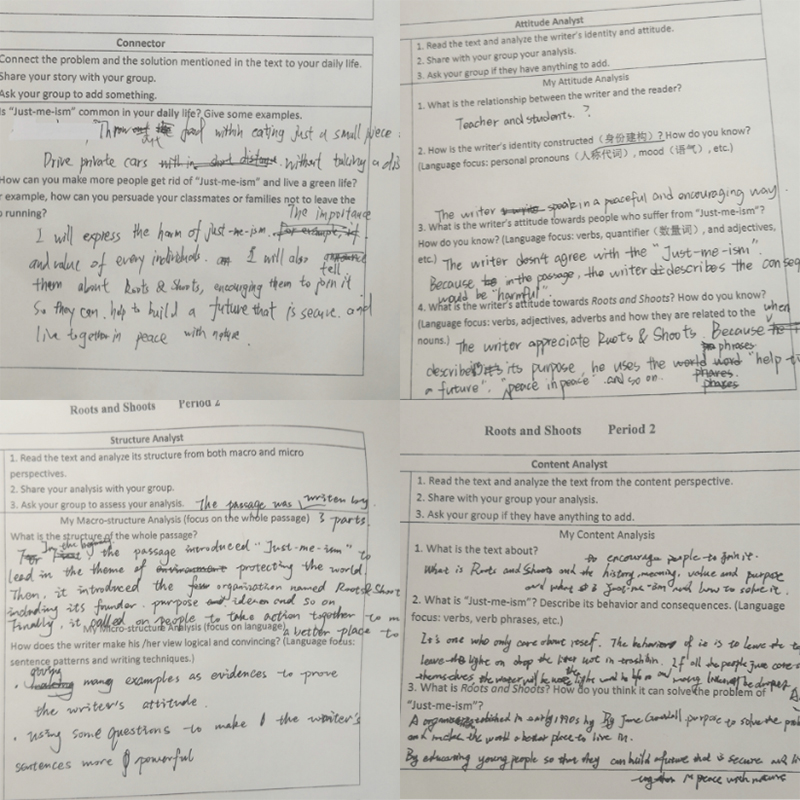 Connector
Connect the problem and the solution mentioned in the text to your daily life.
Share your story with your group.
Ask your group to add something.
Is "Just-me-ism" common in your daily life? Give some examples.
food within eating just a small piece
Drive private cars without taking a
How can you make more people get rid of "Just-me-ism" and live a green life?
example, how can you persuade your classmates or families not to leave the
running?
The importance
I will express the harm of just-me-ism.
and value of every individuals. I will also
tell
them about Roots & Shoots, encouraging them to join it
So they can help to build a future that is secure and
live together in peace with nature.
Attitude Analyst
1. Read the text and analyze the writer's identity and attitude.
2. Share with your group your analysis.
3. Ask your group if they have anything to add.
My Attitude Analysis
1. What is the relationship between the writer and the reader?
Teacher and students.?
2. How is the writer's identity constructed (身份建构)? How do you know?
(Language focus: personal pronouns (人称代词), mood (语气), etc.)
The writer speak in a peaceful and encouraging way.
3. What is the writer's attitude towards people who suffer from "Just-me-ism"?
How do you know? (Language focus: verbs, quantifier (数量词), and adjectives,
etc.) The writer doesn't agree with the "Just-me-ism".
Because in the passage, the writer describes the
would be "harmful".
4. What is the writer's attitude towards Roots and Shoots? How do you know?
(Language focus: verbs, adjectives, adverbs and how they are related to the
when
nouns.) The writer appreciate Roots & Shoots. Because
phrases
its purpose, he uses the "help
a future". "peace in peace" and so on.
Roots and Shoots Period 2
Structure Analyst
1. Read the text and analyze its structure from both macro and micro
perspectives.
2. Share your analysis with your group.
3. Ask your group to assess your analysis. The passage was written by
My Macro-structure Analysis (focus on the whole passage) 3 parts.
What is the structure of the whole passage?
the passage introduced "Just-me-ism" to
lead in the theme of protecting the world
Then, it introduced the organisation named Root & Short
including its founder. purpose and so on
Finally, it called on people to take action together to
My Micro-structure Analysis (focus on language) a better place to
How does the writer make his /her view logical and convincing? (Language focus:
sentence patterns and writing techniques.)
giving
many examples as evidences to prove
the writer's attitude.
using some questions to make the writer's
sentences more powerful
Roots and Shoots Period 2
Content Analyst
1. Read the text and analyze the text from the content perspective.
2. Share with your group your analysis.
3. Ask your group if they have anything to add.
My Content Analysis
1. What is the text about?
to encourage people to join it.
What is Roots and Shoots and the history, meaning, value and purpose
and how to solve it.
2. What is "Just-me-ism"? Describe its behavior and consequences. (Language
focus: verbs, verb phrases, etc.)
It's one who only care about
light on If all the people
3. What is Roots and Shoots? How do you think it can solve the problem of
"Just-me-ism"?
in early 1990s by purpose to solve the
and make the world a better place to live in.
By educating young people so that they can build a future that is secure and
together in peace with nature